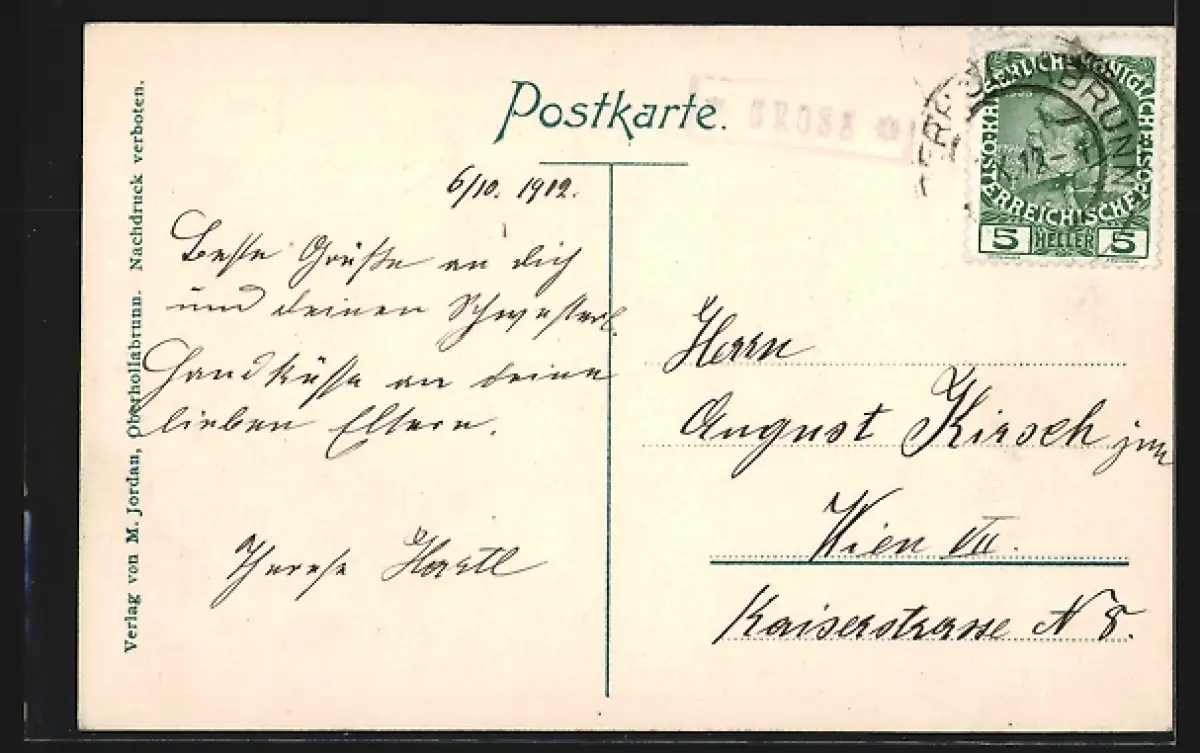 Postkarte.
GROSS
KAISERLICH KÖNIGLICHE ÖSTERREICHISCHE POST
5 HELLER 5
6/10. 1912.
Beste Grüße an dich
und deinen Schwesterl.
Handküsse an deine
lieben Eltern.
Therese Hartl
Herrn
August Kirsch jun
Wien VII.
Kaiserstrasse N 8.
Verlag von M. Jordan, Oberhollabrunn. Nachdruck verboten.